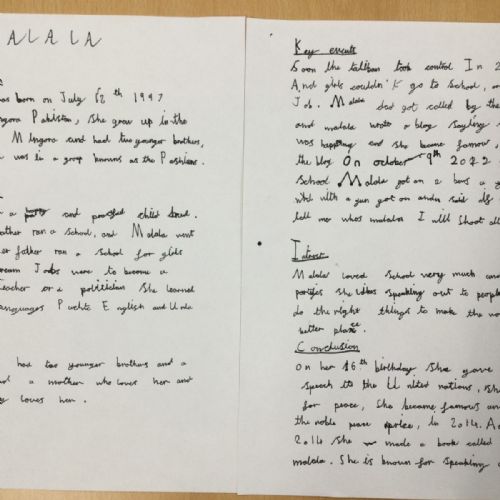 ALALA
was born on July 12th 1997
ngora Pakistan, She grew up in the
Mingora and had two younger brothers,
was in a group known as the Pashtens.
n a and child
other ran a School, and Malala went
er father ran a School for girls
ream Jobs were to become a
teacher or a politician She learned
anguages English and
had two younger brothers and a
a mother who loves her and
y loves her.
Key events
Soon the taliban took control In 2
And girls couldn't go to School, or
Job. Malala dad got called by the
and malala wrote a blog Saying
was happening and She became famous,
the blog On october 9th 2012
School. Malala got on a bus a g
with a gun got on and said
tell me whos malala I will Shoot all
Interest
Malala loved School very much and
parties She likes Speaking out to people
do the right things to make the wo
better place.
Conclusion
On her 16th birthday She gave
Speech to the United nations, She
for peace, She became famous an
the noble peace price, In 2014. A
2014 She made a book called
malala. She is known for Speaking